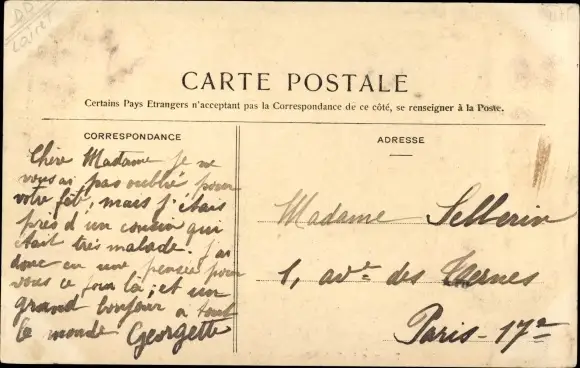 DD
LOIRET
CARTE POSTALE
Certains Pays Etrangers n'acceptant pas la Correspondance de ce côté, se renseigner à la Poste.
CORRESPONDANCE
Chère Madame je ne
vous ai pas oublié pour
votre fête, mais j'étais
près d'un cousin qui
était très malade. J'ai
donc eu une pensée pour
vous ce jour là; et un
grand bonjour a tout
le monde Georgette
ADRESSE
Madame Sellerin
1, ave des Ternes
Paris-17e